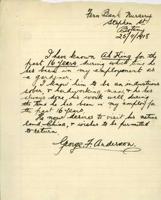 Fern Bank Nursery
Stephen St
Botany
25/9/1918
I have known Ah King for the
past 16 years, during which time he
has been in my employment as
a gardener.
I know him to be an industrious
sober, & hardworking man & he has
always done his work well during
the time he has been in my employ for
the past 16 years
He now desires to visit his native
land China, & wishes to be permitted
to return.
George F. Anderson